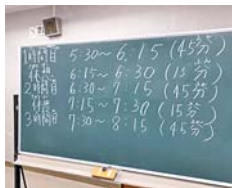 1時間目 5:30～6:15 (45分)
休憩 6:15～6:30 (15分)
2時間目 6:30～7:15 (45分)
休憩 7:15～7:30 (15分)
3時間目 7:30～8:15 (45分)